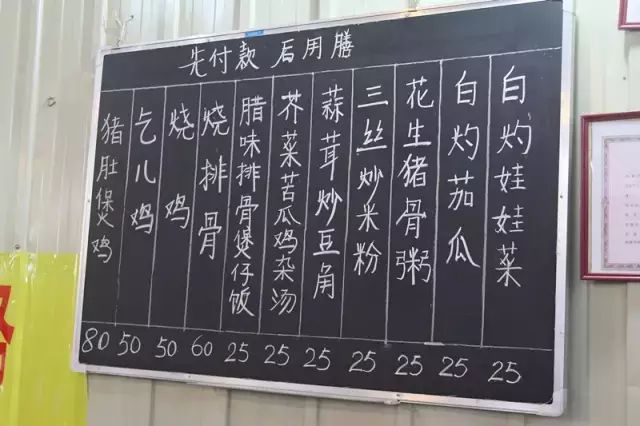 先付款 后用膳
猪肚煲鸡 80
乞儿鸡 50
烧鸡 50
烧排骨 60
腊味排骨煲仔饭 25
芥菜苦瓜鸡杂汤 25
蒜茸炒豆角 25
三丝炒米粉 25
花生猪骨粥 25
白灼茄瓜 25
白灼娃娃菜 25